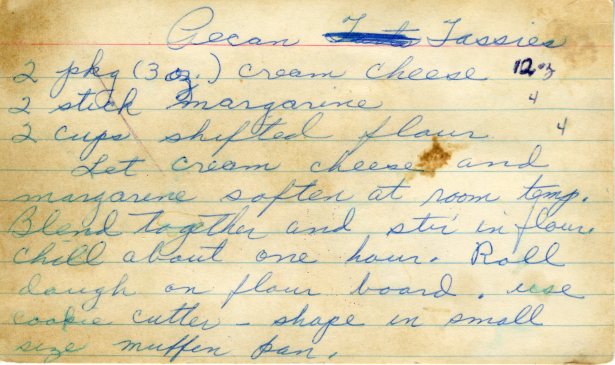 Pecan Tassies
2 pkg (3 oz.) cream cheese 12 oz
2 stick margarine 4
2 cups shifted flour 4
Let cream cheese and
margarine soften at room temp.
Blend together and stir in flour.
Chill about one hour. Roll
dough on flour board. use
cookie cutter - shape in small
size muffen pan.